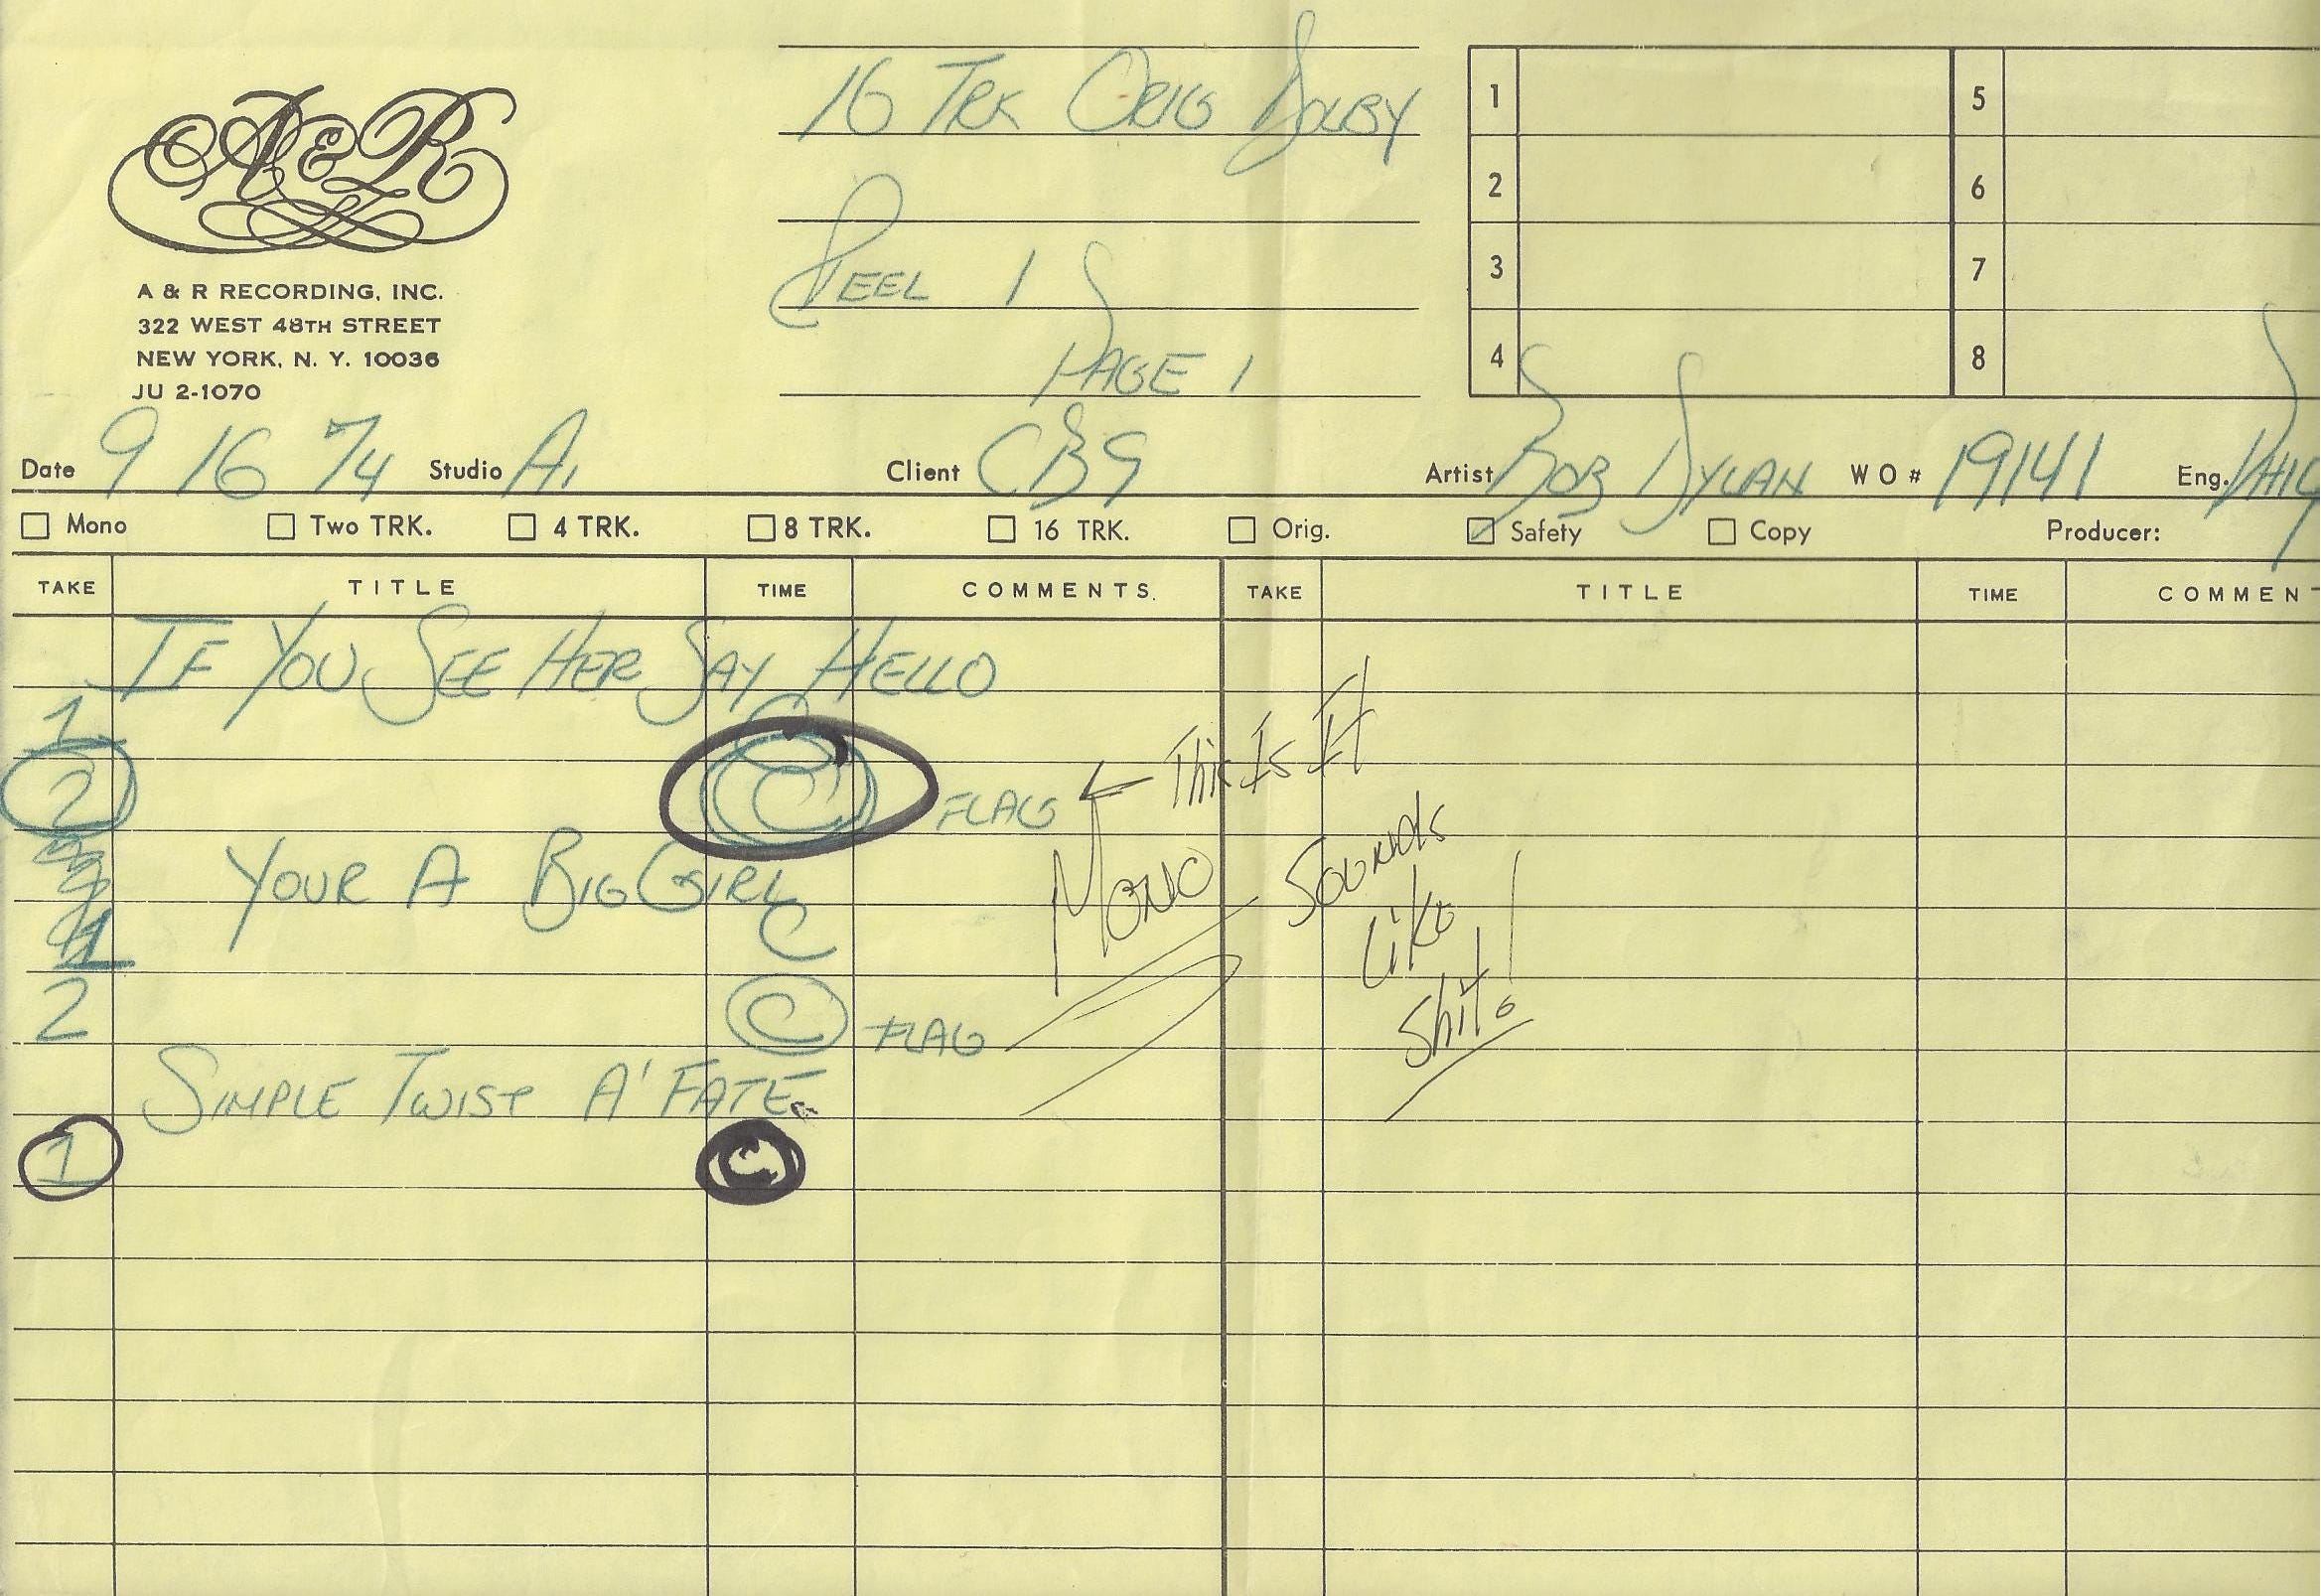 16 TRK ORIG DOLBY
1
5
A&R
2
6
REEL 1
3
7
A & R RECORDING, INC.
322 WEST 48TH STREET
NEW YORK, N. Y. 10036
JU 2-1070
PAGE 1
4
8
Date 9 16 74 Studio A1 Client CBS Artist BOB DYLAN W O # 19141 Eng. PHIL
Mono Two TRK. 4 TRK. 8 TRK. 16 TRK. Orig. Safety Copy Producer:
TAKE TITLE TIME COMMENTS. TAKE TITLE TIME COMMEN
IF YOU SEE HER SAY HELLO
1 C
2 C FLAG ← This Is It
YOUR A BIG GIRL
Mono Sounds
Like
Shit!
1 C
2 C FLAG
SIMPLE TWIST A' FATE
1 C